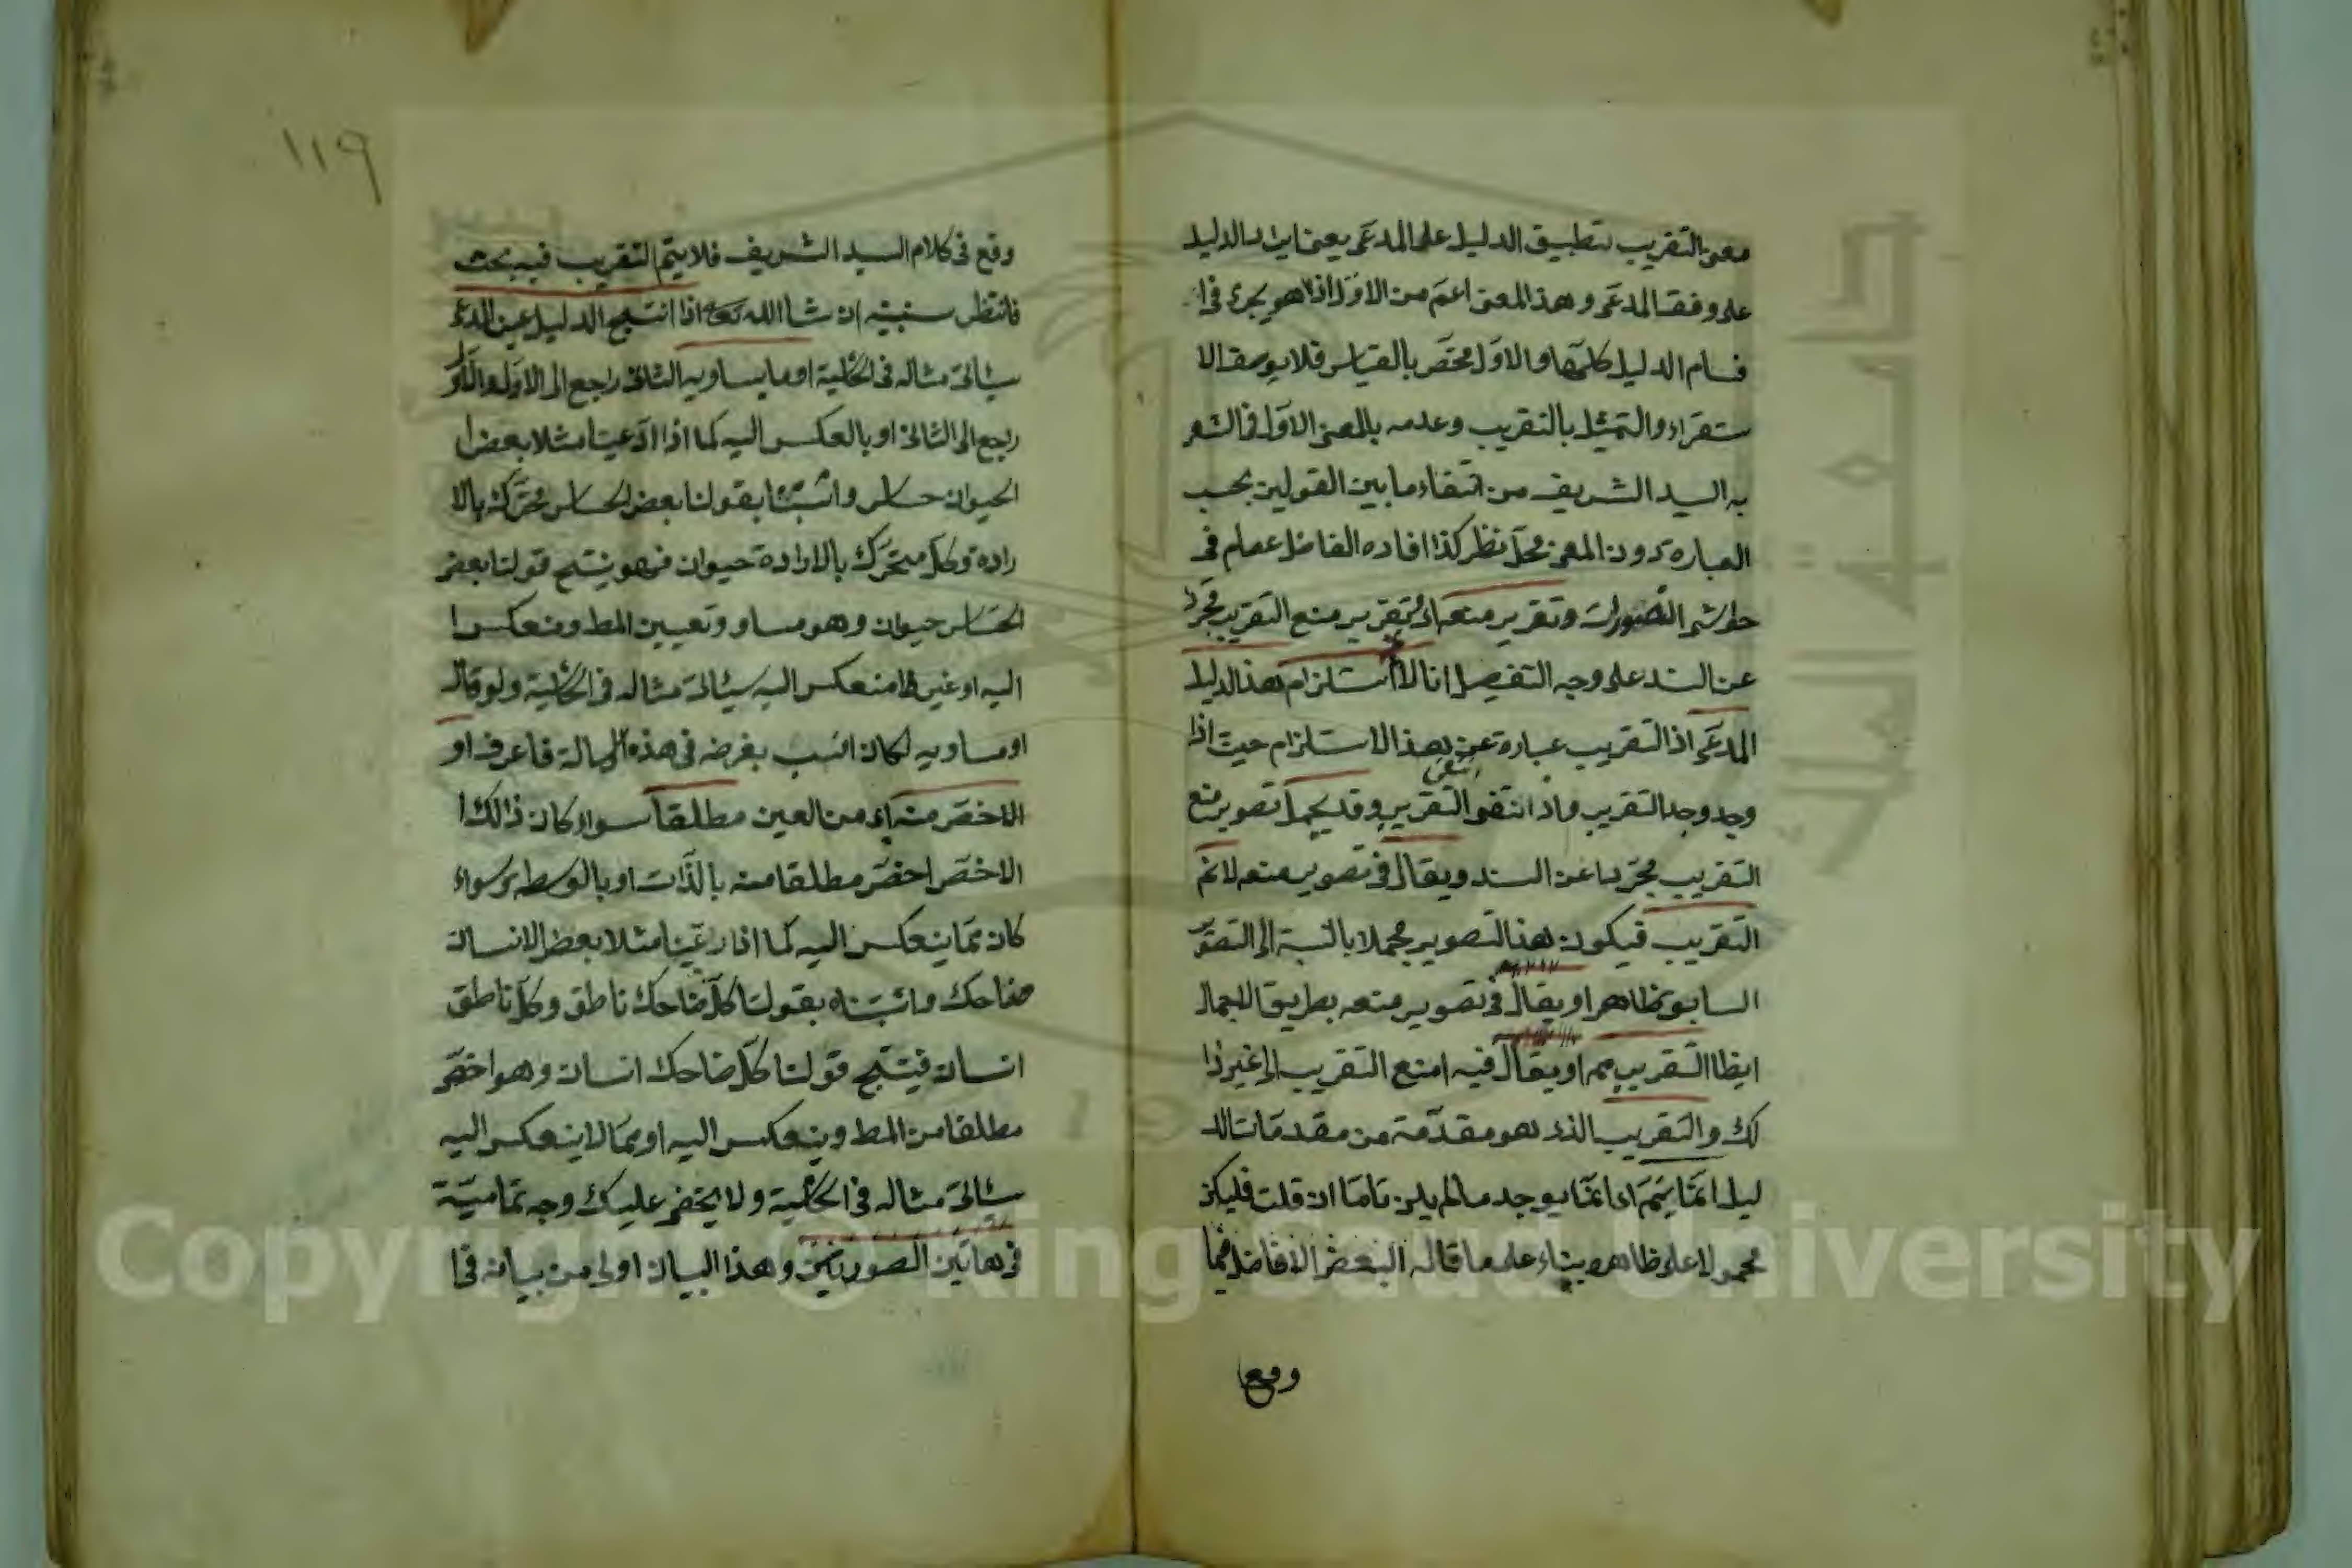 معنى التقريب تطبيق الدليل على المدعى يعنى ايراد الدليل
على وفق المدعى وهذا المعنى اعم من الاول اذ هو يجرى فى ا
قسام الدليل كلها والاول مختص بالقياس فلا يوصف الا
ستقراء والتمثيل بالتقريب وعدمه بالمعنى الاول فما اشعر
به السيد الشريف من انتفاء ما بين القولين بحسب
العبارة دون المعنى محل نظر كذا افاده الفاضل عصام فى
حواشى التصورات وتقرير منعه اى تقرير منع التقريب مجردا
عن السند على وجه التفصيل انا لا استلزام هذا الدليل
المدعى اذ التقريب عبارة عن هذا الاستلزام حيث اذا
وجد وجد التقريب واذا انتفى انتفى التقريب وقد يجمل تصوير منع
التقريب مجردا عن السند ويقال فى تصوير منعه لا نم
التقريب فيكون هذا التصوير مجملا بالنسبة الى التصوير
السابق ظاهرا ويقال فى تصوير منعه بطريق الاجمال
ايظا التقريب مم او يقال فيه امنع التقريب الى غير ذا
لك والتقريب الذى هو مقدمة من مقدمات الد
ليل انما يتم اى انما يوجد ما لم يلزم تاما ان قلت فليكن
محمولا على ظاهره بناء على ما قاله البعض الافاضل فيما
وقع
١١٩
وقع فى كلام السيد الشريف فلا يتم التقريب فيه بحث
فانتظر سنبينه ان شا الله تعالى اذا انتج الدليل عين المدعى
سيأتى مثاله فى الحاشية او ما يساويه الثانى راجع الى الاول والاول
راجع الى الثانى او بالعكس اليه كما اذا ادعينا مثلا بعض ا
لحيوان حساس واثبتنا بقولنا بعض الحساس متحرك بالا
رادة وكل متحرك بالارادة حيوان فهو ينتج قولنا بعض
الحساس حيوان وهو مساو وتعيين المط ومنعكس ا
اليه او غير منعكس اليه سيأتى مثاله فى الحاشية ولو قال
او مساويه لكان انسب بغرضه فى هذه الرسالة فاعرف او
الاخص منه اى من العين مطلقا سواء كان ذالك ا
الاخص اخص مطلقا منه بالذات او بالوسطه وسواء
كان مما ينعكس اليه كما اذا ادعينا مثلا بعض الانسان
ضاحك واثبتناه بقولنا كل ضاحك ناطق وكل ناطق
انسان فينتج قولنا كل ضاحك انسان وهو اخص
مطلقا من المط وينعكس اليه او مما لا ينعكس اليه
سيأتى مثاله فى الحاشية ولا يخفى عليك وجه تمامية
فى هاتين الصورتين وهذا البيان اولى من بيانه فى ا
Copyright © King Saud University